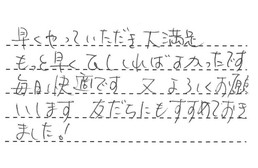 早くやっていただき大満足
もっと早くていしればよかったです
毎日快適です 又よろしくお願
いします 友だちにもすすめておき
ました!